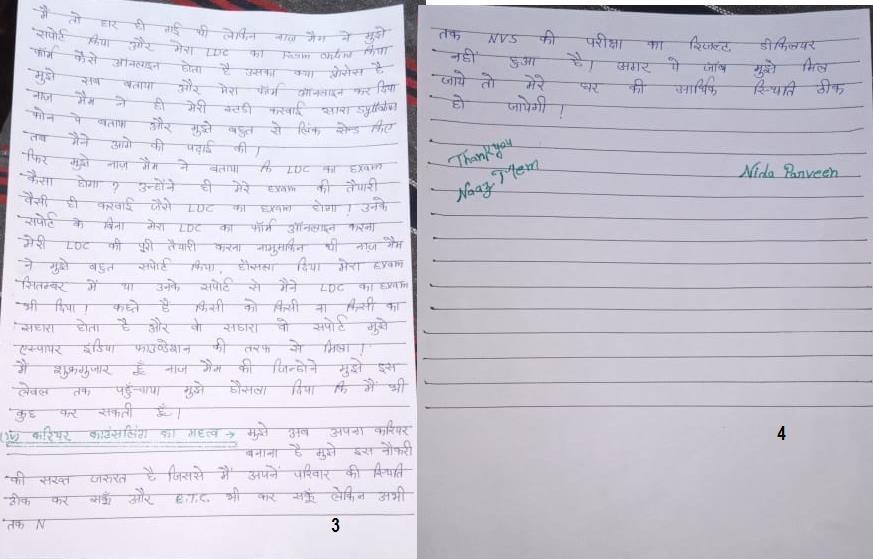 मै तो हार ही गई थी लेकिन नाज मैम ने मुझे
सपोर्ट किया और मेरा LDC का Exam online किया
फॉर्म कैसे ऑनलाइन होता है उसका क्या प्रोसेस है
मुझे सब बताया और मेरा फॉर्म ऑनलाइन कर दिया
नाज मैम ने ही मेरी स्टडी करवाई सारा Syllabus
फोन पे बताया और मुझे बहुत से लिंक सेन्ड किए
तब मैने आगे की पढ़ाई की।
फिर मुझे नाज मैम ने बताया कि LDC का Exam
कैसा होगा? उन्होंने ही मेरे Exam की तैयारी
वैसी ही करवाई जैसे LDC का Exam होगा। उनके
सपोर्ट के बिना मेरा LDC का फॉर्म ऑनलाइन करना
मेरी LDC की पूरी तैयारी करना नामुमकिन थी नाज मैम
ने मुझे बहुत सपोर्ट किया, हौसला दिया मेरा Exam
सितम्बर में था उनके सपोर्ट से मैने LDC का Exam
भी दिया। कहते है किसी को किसी ना किसी का
सहारा होता है और वो सहारा वो सपोर्ट मुझे
एस्पायर इंडिया फाउण्डेशन की तरफ से मिला।
मै शुक्रगुजार हूँ नाज मैम की जिन्होने मुझे इस
लेवल तक पहुँचाया मुझे हौसला दिया कि मैं भी
कुछ कर सकती हूँ।
(iv) करियर काउंसलिंग का महत्व → मुझे अब अपना करियर
बनाना है मुझे इस नौकरी
की सख्त जरुरत है जिससे मैं अपने परिवार की स्थिति
ठीक कर सकूँ और E.T.C. भी कर सकूं लेकिन अभी
तक N
3
तक NVS की परीक्षा का रिजल्ट डीकिलयर
नहीं हुआ है। अगर ये जॉब मुझे मिल
जाये तो मेरे घर की आर्थिक स्थिति ठीक
हो जायेगी।
Thankyou
Naaz Mem
Nida Parveen
4